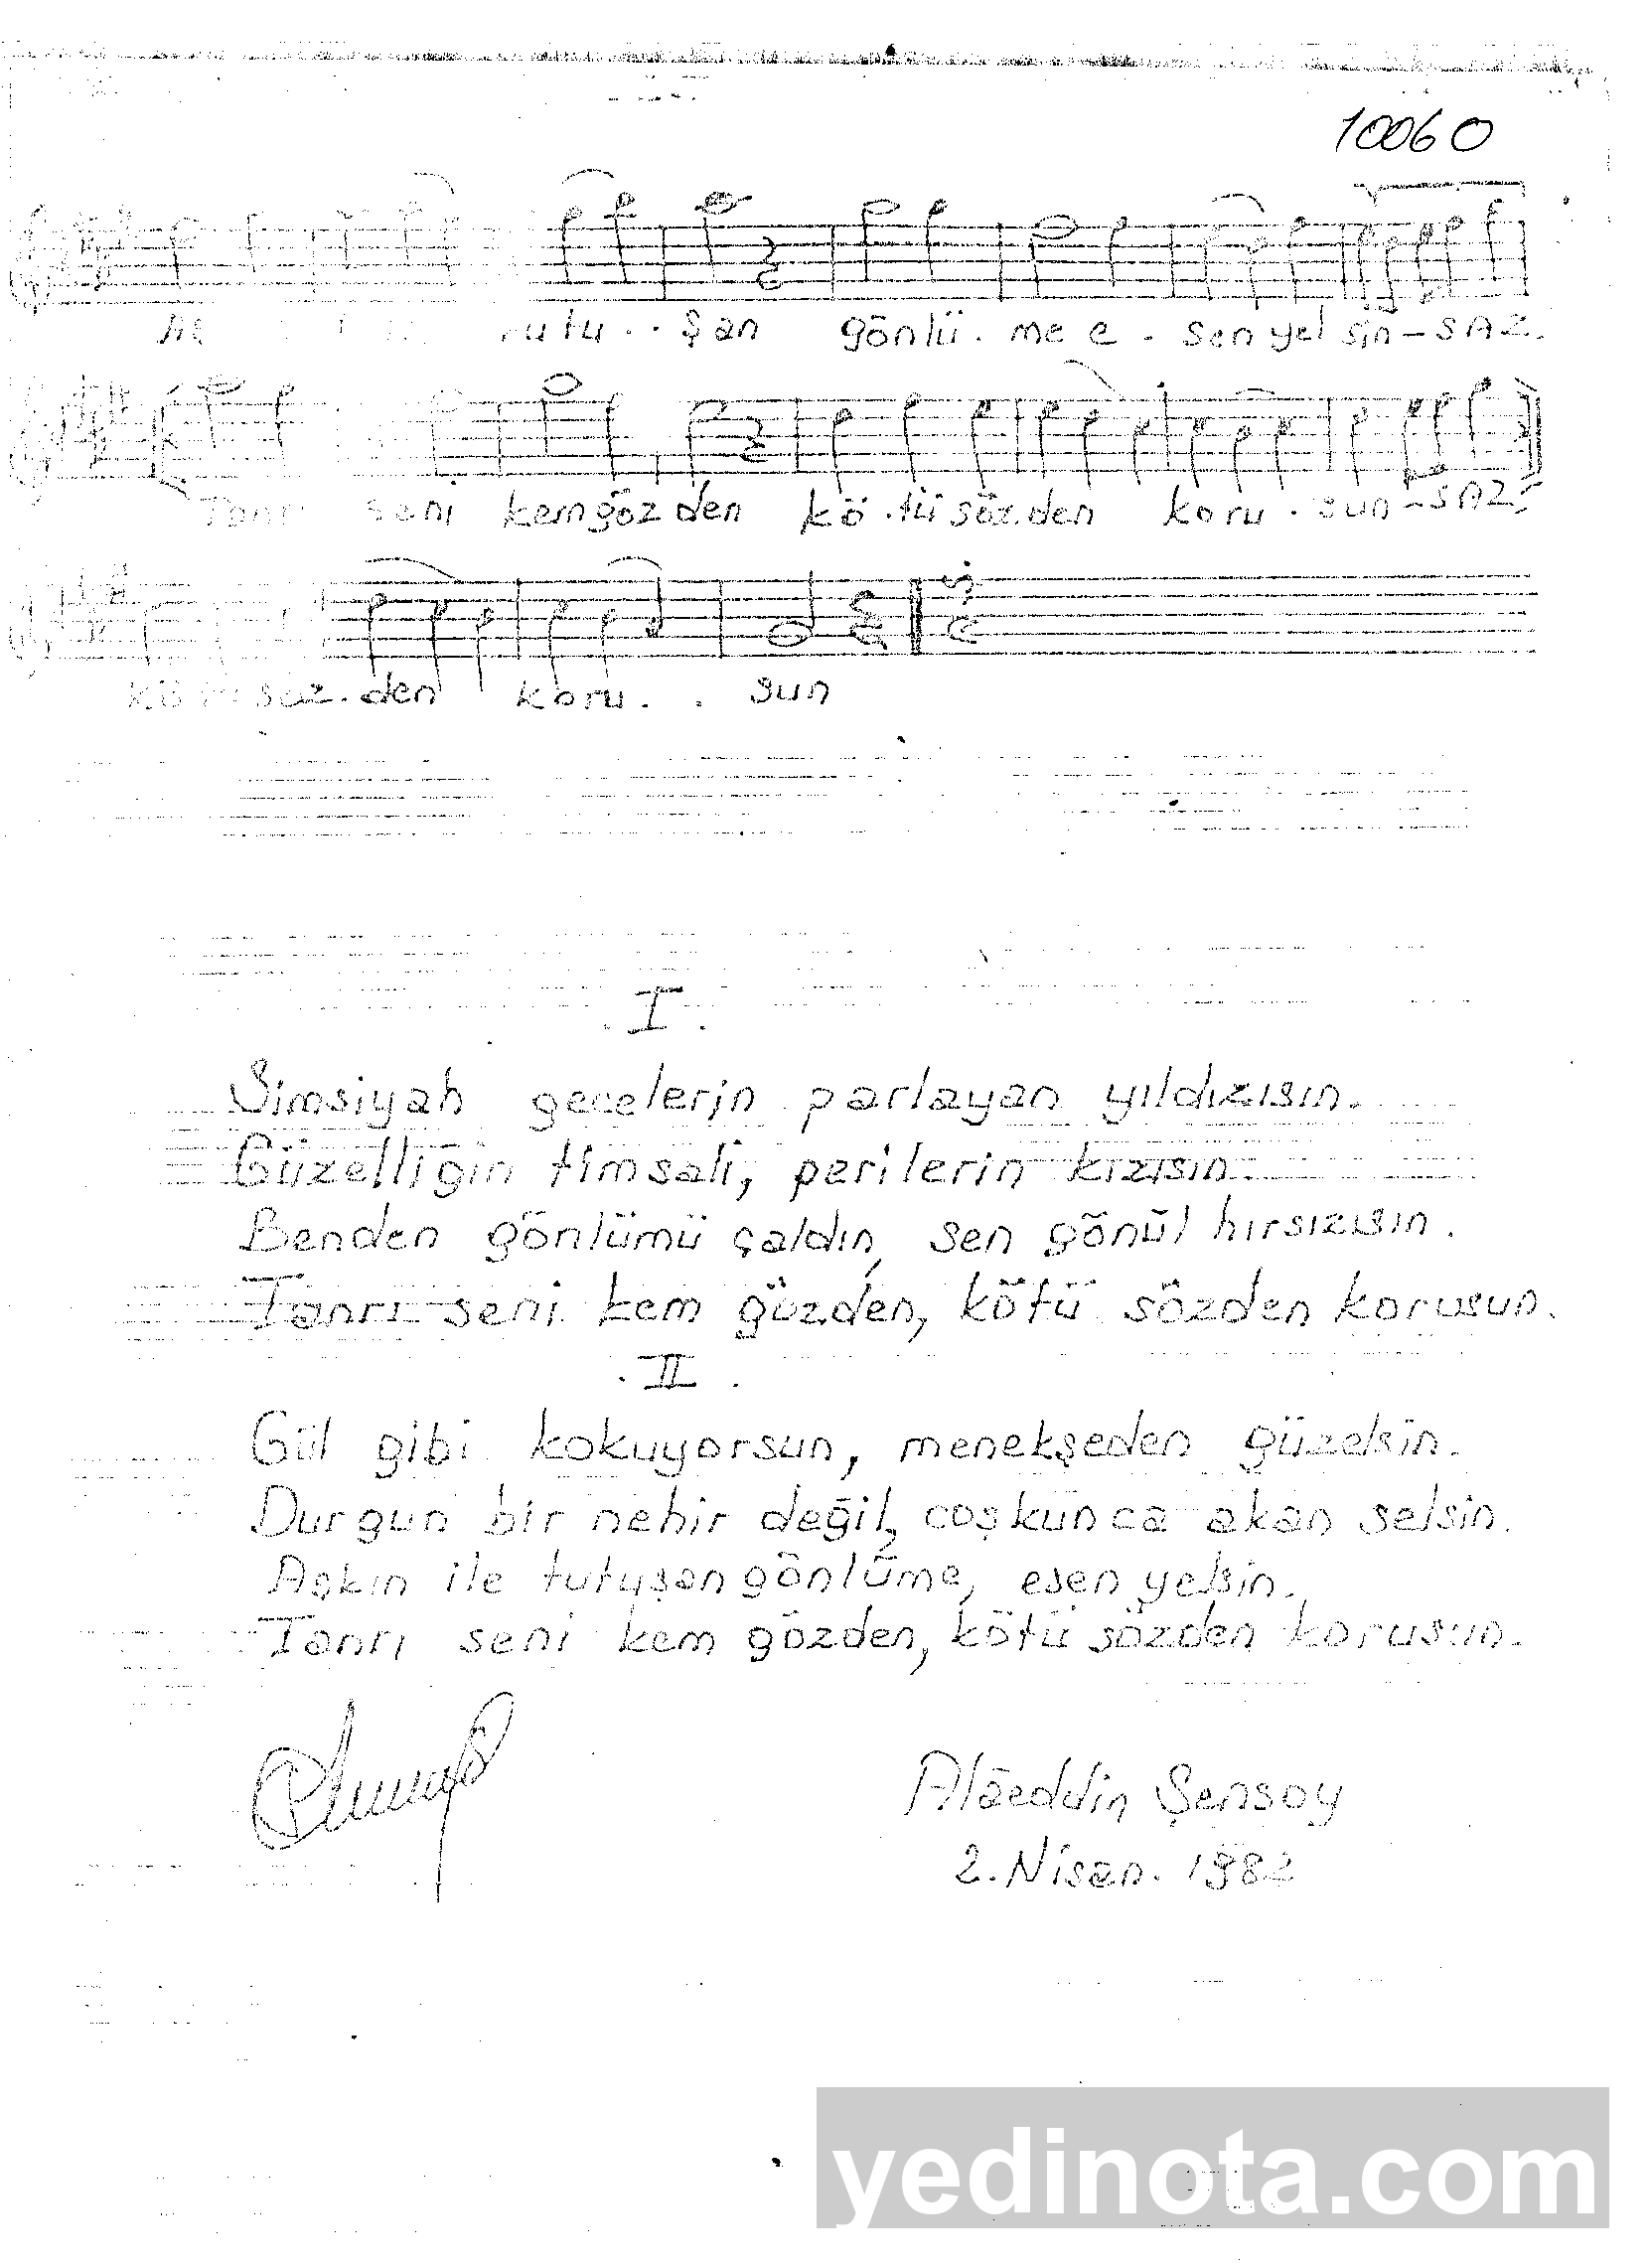 10060
tutu . . şan gönlü . me e . sen yel sin - SAZ.
Tanrı seni kemgöz den kö . tü söz . den koru . sun - SAZ
kö tü söz . den koru . . sun
I
Simsiyah gecelerin parlayan yıldızısın.
Güzelliğin timsali, perilerin kızısın.
Benden gönlümü çaldın, sen gönül hırsızısın.
Tanrı seni kem gözden, kötü sözden korusun.
. II .
Gül gibi kokuyorsun, menekşeden güzelsin.
Durgun bir nehir değil, coşkunca akan selsin.
Aşkın ile tutuşan gönlüme, esen yelsin.
Tanrı seni kem gözden, kötü sözden korusun.
Alâeddin Şensoy
2. Nisan. 1982
yedinota.com